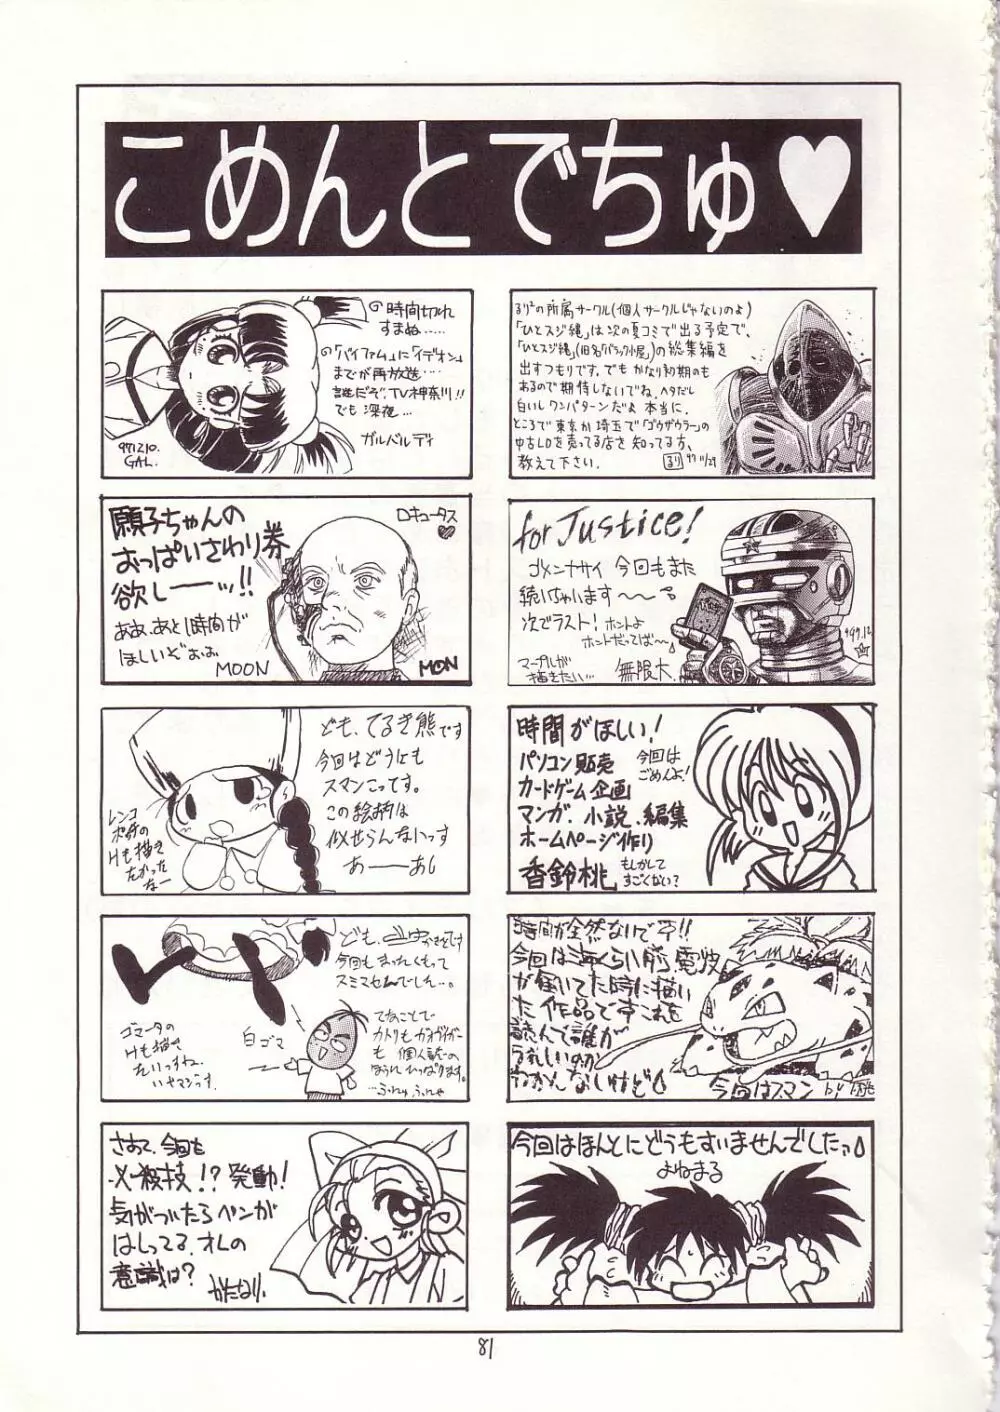 こめんとでちゅ♥
時間切れ
すまぬ……
「バイファム」に「イデオン」
までが再放送…
誰だぞ、TV神奈川!!
でも深夜…
ガルベルディ
971210.
GAL.
るり²の所属サークル(個人サークルじゃないのよ)
「ひとスジ縄」は次の夏コミで出る予定で、
「ひとスジ縄」(旧名「バラック小屋」)の総集編を
出すつもりです。でも かなり初期のも
あるので期待しないでね。ヘタだし
白いしワンパターンだよ 本当に。
ところで東京か埼玉で「ゴウザウラー」の
中古LDを売ってる店を知ってる方、
教えて下さい。
るり 97 11/29
願子ちゃんの
おっぱいさわり券
欲しーーッ!!
ああ、あと1時間が
ほしいぞぉぉ
MOON
ロキュータス
♥
MOON
for Justice!
ゴメンナサイ 今回もまた
続いちゃいます〜〜
次でラスト! ホントよ
ホントだってば〜
マープルが
描きたい…
無限大
'97.12
ども、てるき熊です
今回はどうにも
スマンこってす。
この絵柄は
似せらんないっす
あーーあ
レンコ
ポ好の
Hも描き
たかった
なー
時間がほしい!
パソコン販売
カードゲーム企画
マンガ、小説、編集
ホームページ作り
香鈴桃
今回は
ごめんよ!
もしかして
すごくない?
今回もまったくもって
スミマセムでしん…。
ゴマータの
Hも描き
たいっすね
いやマジっす。
白ゴマ
てなことで
カトリもガオガイガー
も 個人誌の
ほうれ ひっぱります。
…ふんゅ ふんゃ
時間が全然ないです!!
今回は海くらい前、電波
が届いてた時に描い
た作品ですこれを
読んで誰が
うれしいのか
わかんなしけど
今回はスマン
by
さあて、今回も
必殺技!?発動!
気がついたらペンが
はしってる。オレの
意識は?
かたなり
今回はほんとにどうもすいませんでしたっ
よねまる
81